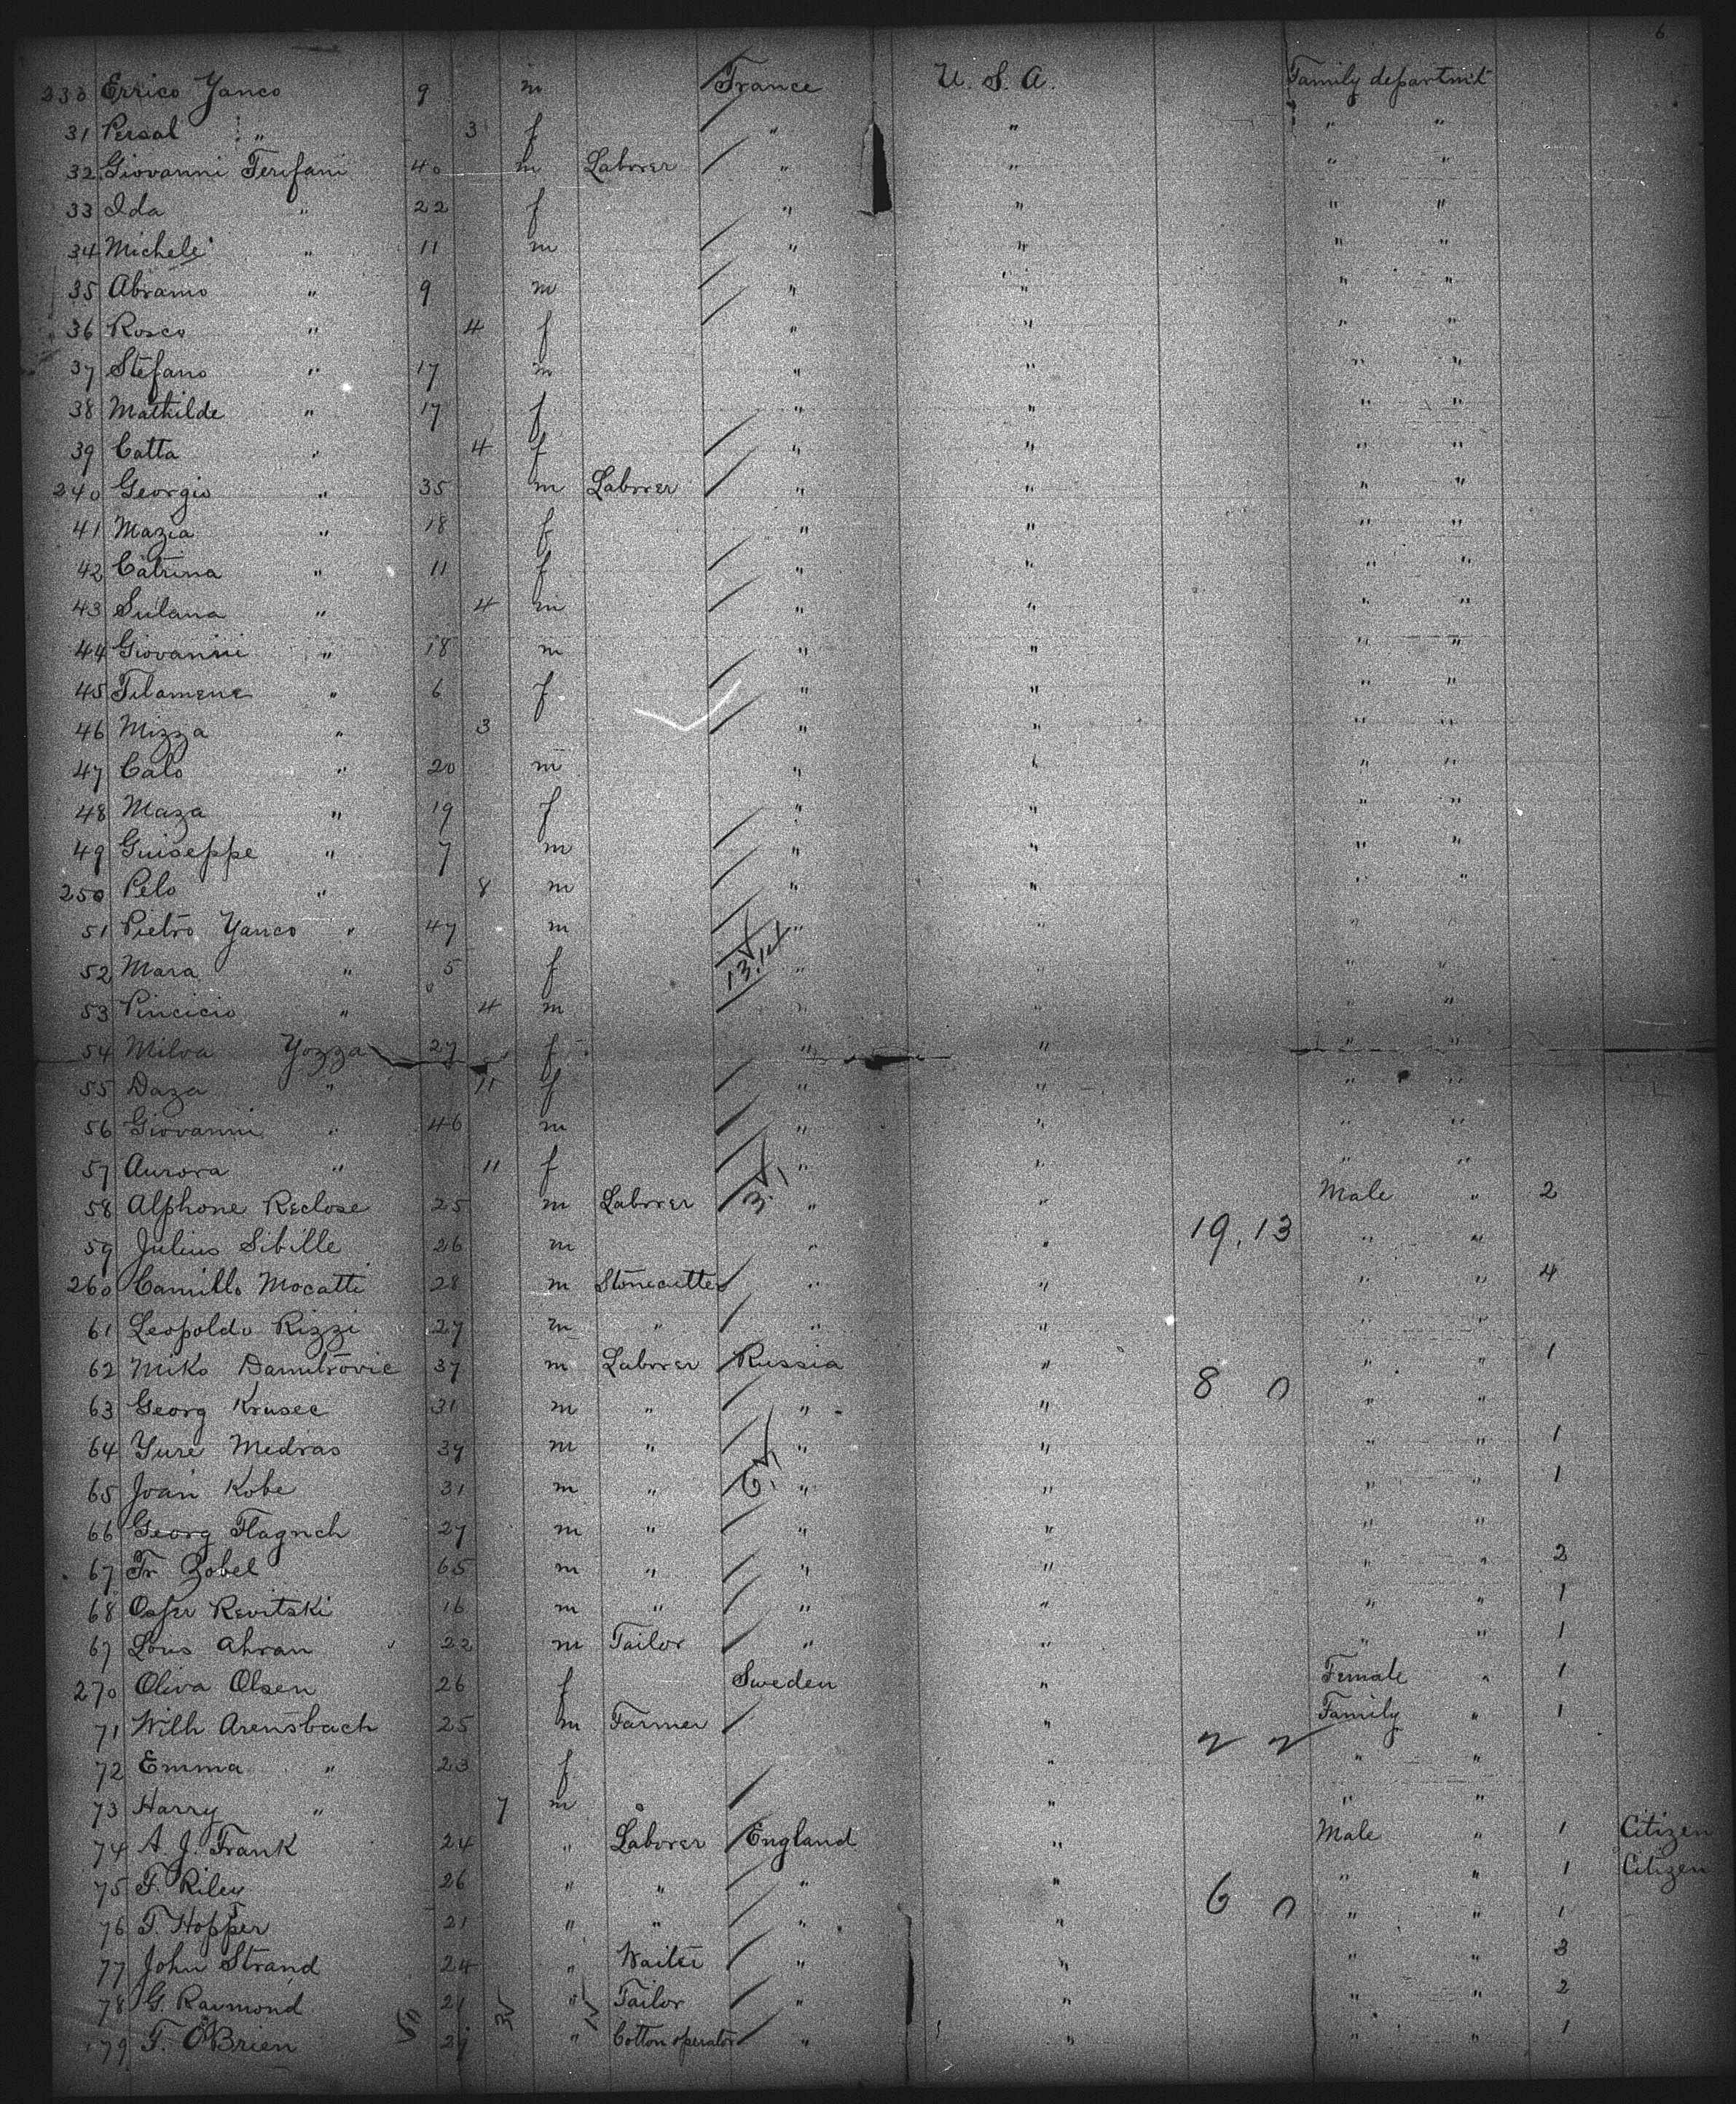 6
230 Errico Yanco 9 m France U. S. A. Family departmt
31 Persal " 3 f " " " "
32 Giovanni Terifani 40 m Laborer " " " "
33 Ida " 22 f " " " "
34 Michele " 11 m " " " "
35 Abramo " 9 m " " " "
36 Rosco " 4 f " " " "
37 Stefano " 17 m " " " "
38 Mathilde " 17 f " " " "
39 Catta " 4 f " " " "
240 Georgio " 35 m Laborer " " " "
41 Mazia " 18 f " " " "
42 Catrina " 11 f " " " "
43 Sulana " 4 m " " " "
44 Giovanni " 18 m " " " "
45 Filamene " 6 f " " " "
46 Mizza " 3 " " " "
47 Calo " 20 m " " " "
48 Maza " 19 f " " " "
49 Guiseppe " 7 m " " " "
250 Pelo " 8 m " " " "
51 Pietro Yanco " 47 m " " " "
52 Mara " 5 f " " " "
53 Pincicio " 4 m " " " "
54 Milva Yozza 27 f " " " "
55 Daza " 11 f " " " "
56 Giovanni " 46 m " " " "
57 Aurora " 11 f " " " "
58 Alphone Reclose 25 m Laborer 3 " " Male " 2
59 Julius Sibille 26 m " " 19.13 " "
260 Camillo Mocatti 28 m Stonecutter " " " " 4
61 Leopoldo Rizzi 27 m " " " " "
62 Miko Damitrovic 37 m Laborer Russia " " " 1
63 Georg Krusec 31 m " " " 8 0 " "
64 Yure Medras 39 m " " " " " 1
65 Joan Kobe 31 m " 6 " " " " 1
66 Georg Flagnch 27 m " " " " "
67 Fr. Zobel 65 m " " " " " 2
68 Osser Revitski 16 m " " " " " 1
69 Lois Ahran 22 m Tailor " " " " 1
270 Oliva Olsen 26 f Sweden " Female " 1
71 Wilh Arensbach 25 m Farmer " Family " 1
72 Emma " 23 f " 2 2 " "
73 Harry " 7 m " " "
74 A. J. Frank 24 " Laborer England " Male " 1 Citizen
75 F. Riley 26 " " " " " " 1 Citizen
76 T. Hopper 21 " " " " 6 0 " " 1
77 John Strand 24 " Waiter " " " " 3
78 G. Raymond 21 " Tailor " " " " 2
79 T. O'Brien 29 " Cotton operator " " " " 1